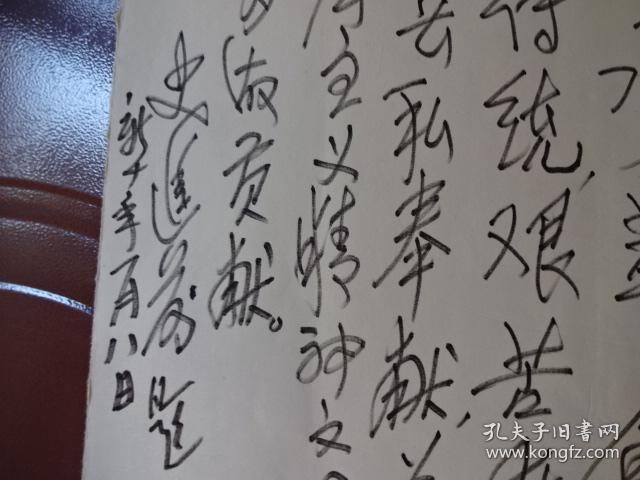 传统,艰苦
去私奉献,
主义精神文
做贡献。
史进前题
新千年一月八日
孔夫子旧书网
www.kongfz.com